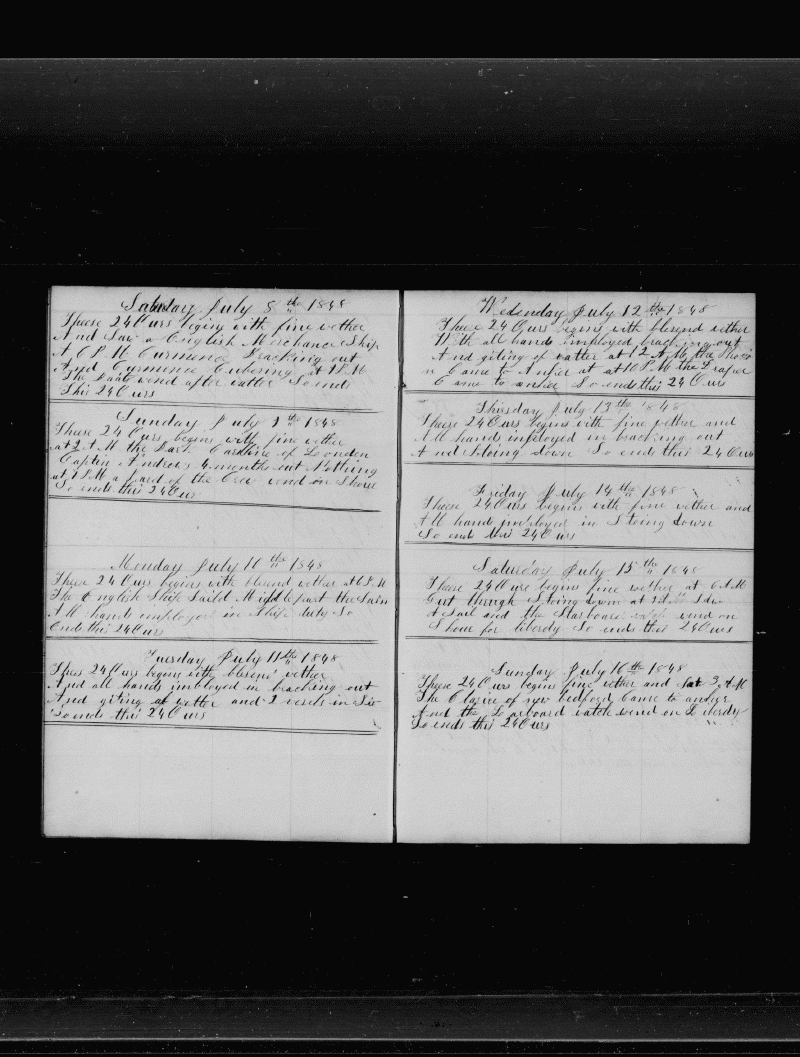 Saturday July 8 th 1848
Theese 24 Ours begins with fine vether
And Saw a English Merchance Ship
At 6 P M Curmence Bracking out
And Curmence Cubering at 9 P M
The Boats vend after vatter So end
This 24 Ours
Sunday July 9 th 1848
Theese 24 Ours begins with fine vether
at 2 A M the Bark Caroline of Loonden
Captin Andrews 4 months out Nothing
at 1 P M a part of the Crew vend on Shore
So ends this 24 Ours
Monday July 10 th 1848
Theese 24 Ours begins with blesend vether at 6 P M
The English Ship Saild Middle part the Sain
All hands imployd in Ship duty So
Ends this 24 Ours
Tuesday July 11 th 1848
Thees 24 Ours begins with blesend vether
And all hands imbloyed in bracking out
And giting of vether and 2 vesels in Site
So ends this 24 Ours
Wedenday July 12 th 1848
Theese 24 Ours begins with blesend vether
With all hands imployed bracking out
And giting of vatter at 12 A M the
Came to Ancher at at 10 P M the
Came to ancher So ends this 24 Ours
Thirsday July 13 th 1848
Theese 24 Ours begins with fine vether and
All hands imployed in bracking out
And Stoing down So ends this 24 Ours
Friday July 14 th 1848
Theese 24 Ours begins with fine vether and
All hands imployed in Stoing down
So ends this 24 Ours
Saturday July 15 th 1848
These 24 Ours begins fine vether at 6 A M
Gut through Stoing down at
A Sail and the Starboard vend on
Shour for liberdy So ends this 24 Ours
Sunday July 16 th 1848
Theese 24 Ours begins fine vether and at 3 A M
The Clarice of new bedford Came to ancher
And the Larboard vatch vend on Liberdy
So ends this 24 Ours